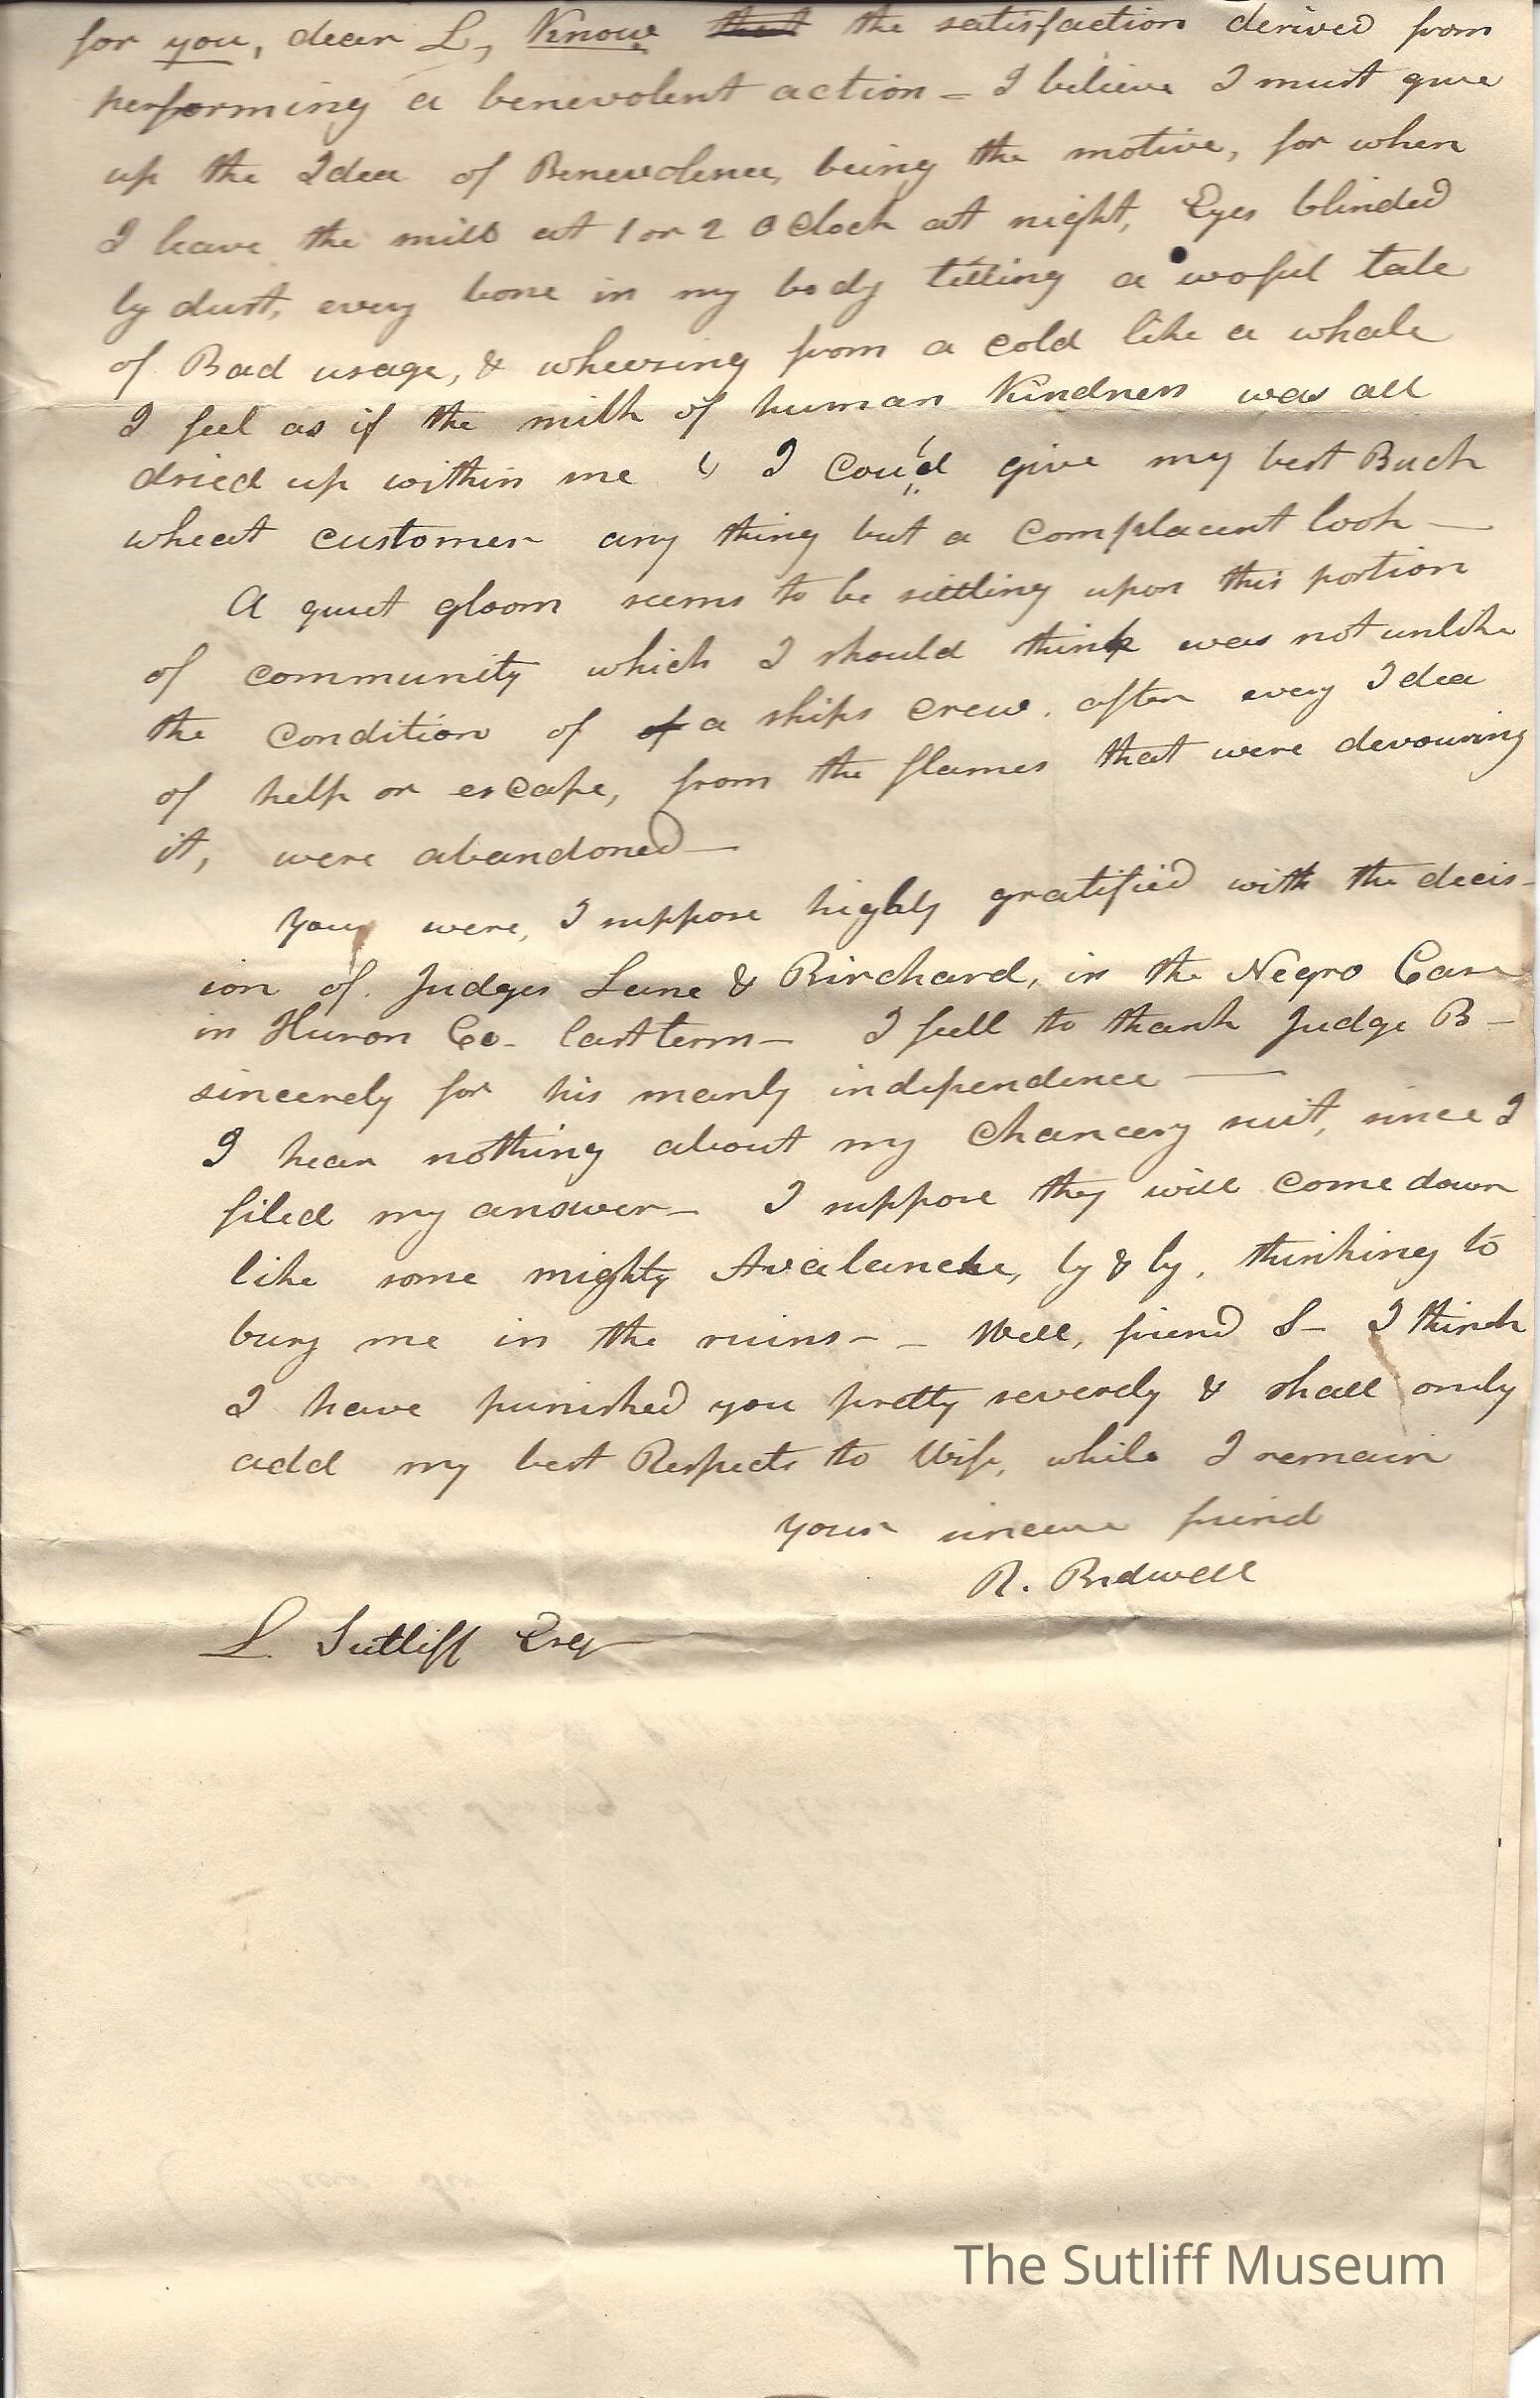 for you, dear L, Know that the satisfaction derived from
performing a benevolent action – I believe I must give
up the Idea of Benevolence, being the motive, for when
I leave the mill at 1 or 2 O Clock at night, Eyes blinded
by dust, every bone in my body telling a woful tale
of Bad usage, & wheezing from a cold like a whale
I feel as if the milk of human Kindness was all
dried up within me & I cou'd give my best Buck
wheat customer any thing but a complacent look —
A quiet gloom seems to be settling upon this portion
of community which I should think was not unlike
the condition of of a ships crew, after every Idea
of help or escape, from the flames that were devouring
it, were abandoned —
You were, I suppose highly gratified with the decis-
ion of Judges Lane & Birchard, in the Negro Case
in Huron Co. last term – I feel to thank Judge B –
sincerely for his manly independence —
I hear nothing about my Chancery suit, since I
filed my answer – I suppose they will come down
like some mighty Avalanche, by & by, thinking to
bury me in the ruins – – Well, friend S – I think
I have punished you pretty severely & shall only
add my best Respects to Wife, while I remain
your sincere friend
R. Bidwell
L. Sutliff Esq
The Sutliff Museum